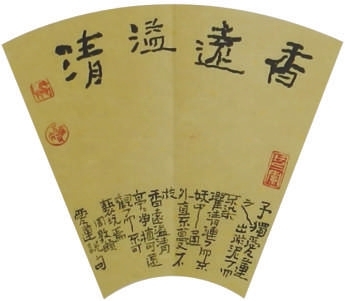 香遠溢清
予獨愛蓮
之出淤泥而
不染
濯清漣而不
妖中通
外直不蔓不
枝
香遠溢清
亭亭淨植可遠
觀而不可
褻玩焉
周敦頤說句